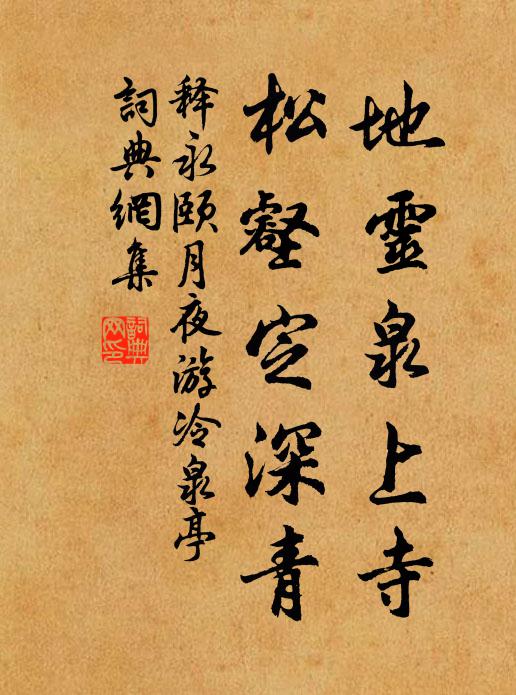 地靈泉上寺
松壑空深青
释永颐月夜游冷泉亭
詞典網集
詞典
网印